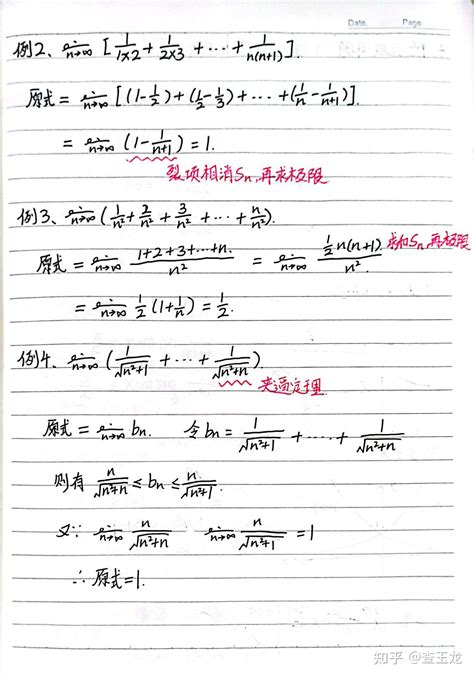 Date. Page
例2、lim n→∞ [1/1×2 + 1/2×3 + ··· + 1/n(n+1)].
原式 = lim n→∞ [(1-1/2)+(1/2-1/3)+···+(1/n-1/n+1)].
= lim n→∞ (1-1/n+1) = 1.
裂项相消Sn,再求极限
例3、lim n→∞ (1/n²+2/n²+3/n²+···+n/n²).
原式 = lim n→∞ 1+2+3+···+n./n² = lim n→∞ ½n(n+1)/n². 求和Sn,再极限
= lim n→∞ ½(1+1/n) = ½.
例4、lim n→∞ (1/√n²+1 + ··· + 1/√n²+n).
夹逼定理
原式 = lim n→∞ bn. 令bn = 1/√n²+1 + ····· + 1/√n²+n
则有 n/√n²+n ≤ bn ≤ n/√n²+1.
又∵ lim n→∞ n/√n²+n lim n→∞ n/√n²+1 = 1
∴原式=1.
知乎 @查玉龙